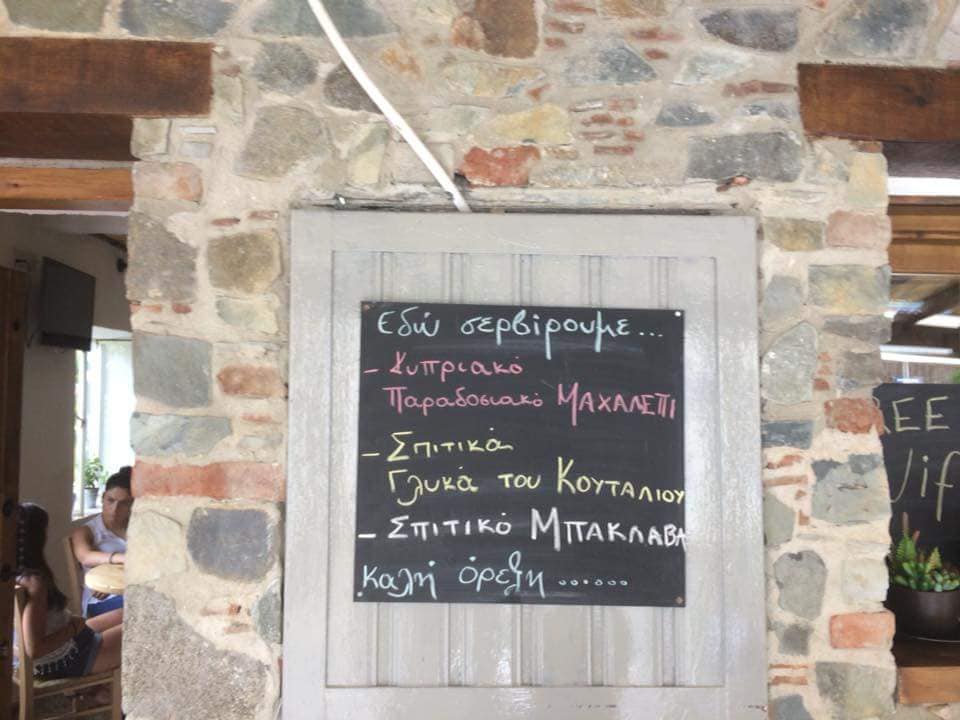 Εδώ σερβίρουμε...
- Κυπριακό
Παραδοσιακό ΜΑΧΑΛΕΠΙ
- Σπιτικά
Γλυκά του ΚΟΥΤΑΛΙΟΥ
- Σπιτικό ΜΠΑΚΛΑΒΑ
Καλή όρεξη ......
REE
Wif